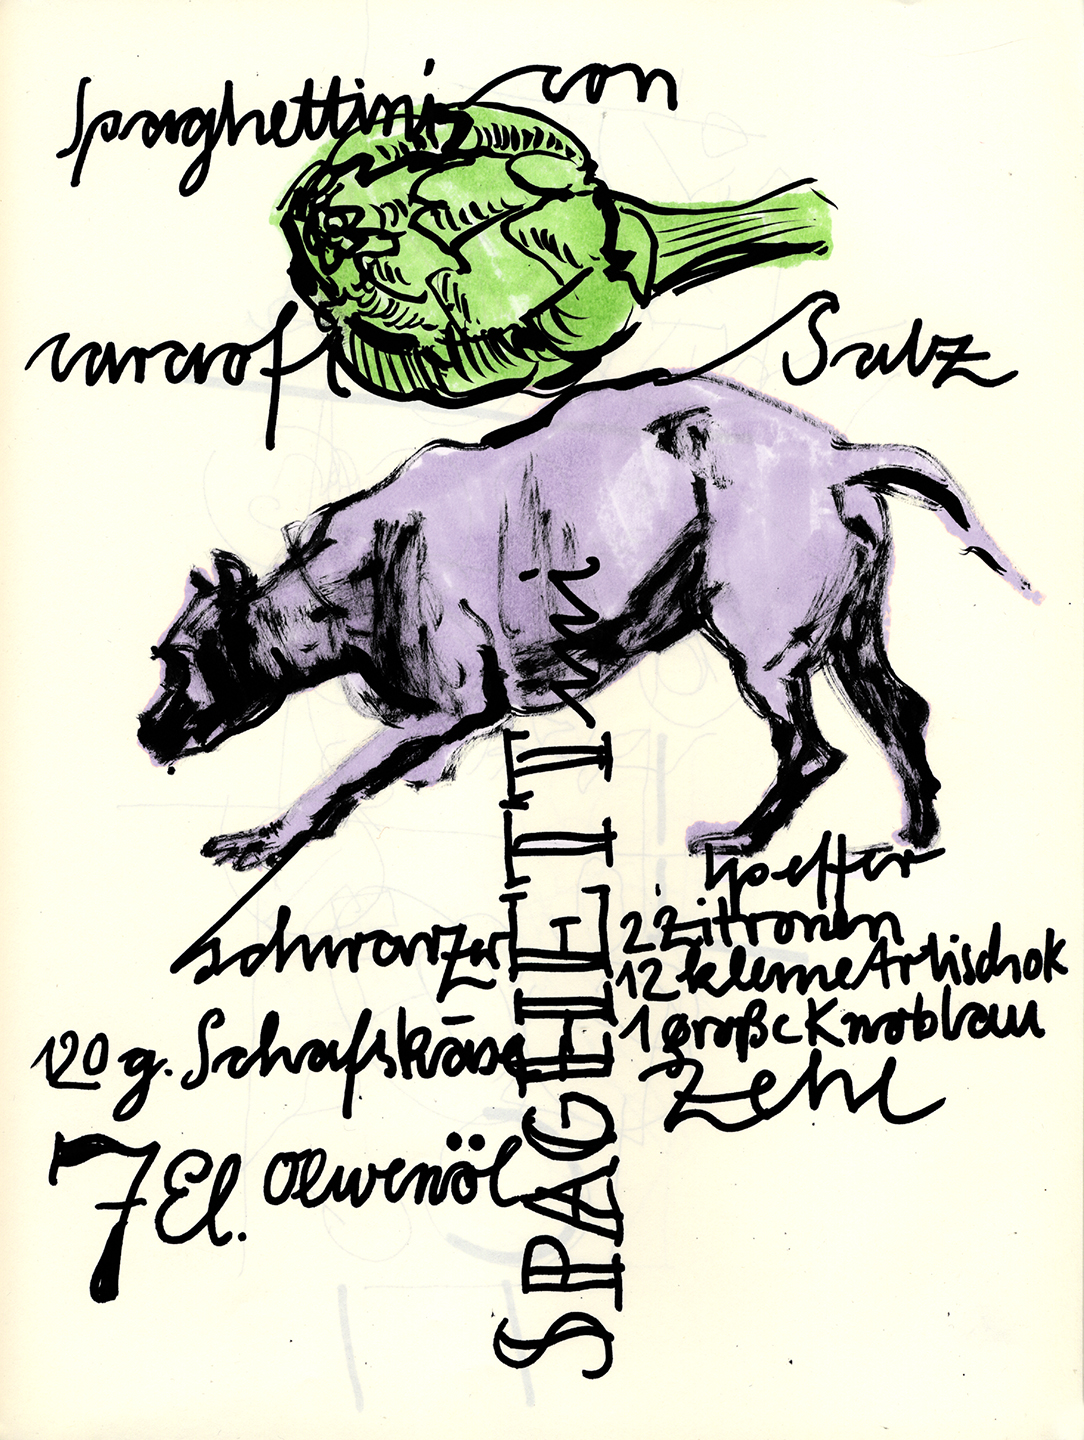 Spaghettini con
carciofi
Salz
schwarzer
Pfeffer
2 Zitronen
12 kleine Artischok
1 große Knoblau
Zehe
120 g. Schafskäse
7 El. Olivenöl
SPAGHETTIni